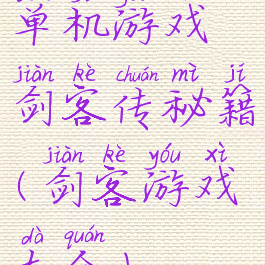 单机游戏
jiàn kè chuán mì jí
剑客传秘籍
jiàn kè yóu xì
(剑客游戏
dà quán
大全)